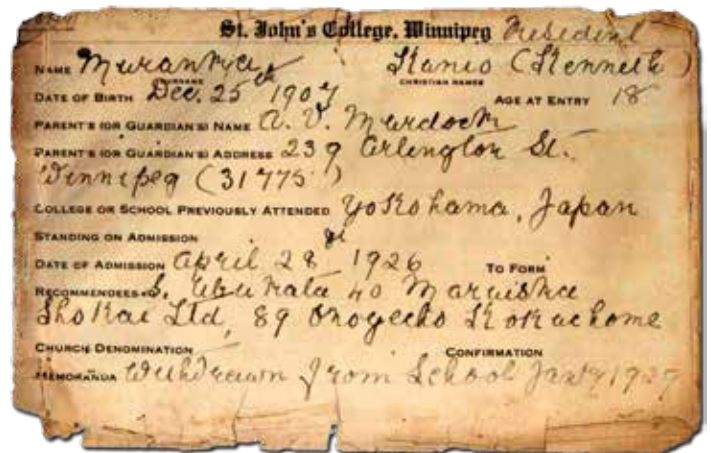 St. John's College, Winnipeg Resident
NAME Muranaya Kanio (Kenneth)
SURNAME CHRISTIAN NAMES
DATE OF BIRTH Dec. 25th 1907 AGE AT ENTRY 18
PARENT'S (OR GUARDIAN'S) NAME A. V. Murdock
PARENT'S (OR GUARDIAN'S) ADDRESS 239 Arlington St.
Winnipeg (31775)
COLLEGE OR SCHOOL PREVIOUSLY ATTENDED Yokohama, Japan
STANDING ON ADMISSION
DATE OF ADMISSION April 28 1926 TO FORM
RECOMMENDEES S. c/o Maruishi
Shokai Ltd, 89 Onoyecho Rokuchome
CHURCH DENOMINATION CONFIRMATION
MEMORANDA Withdrawn from School Jan'y 1927